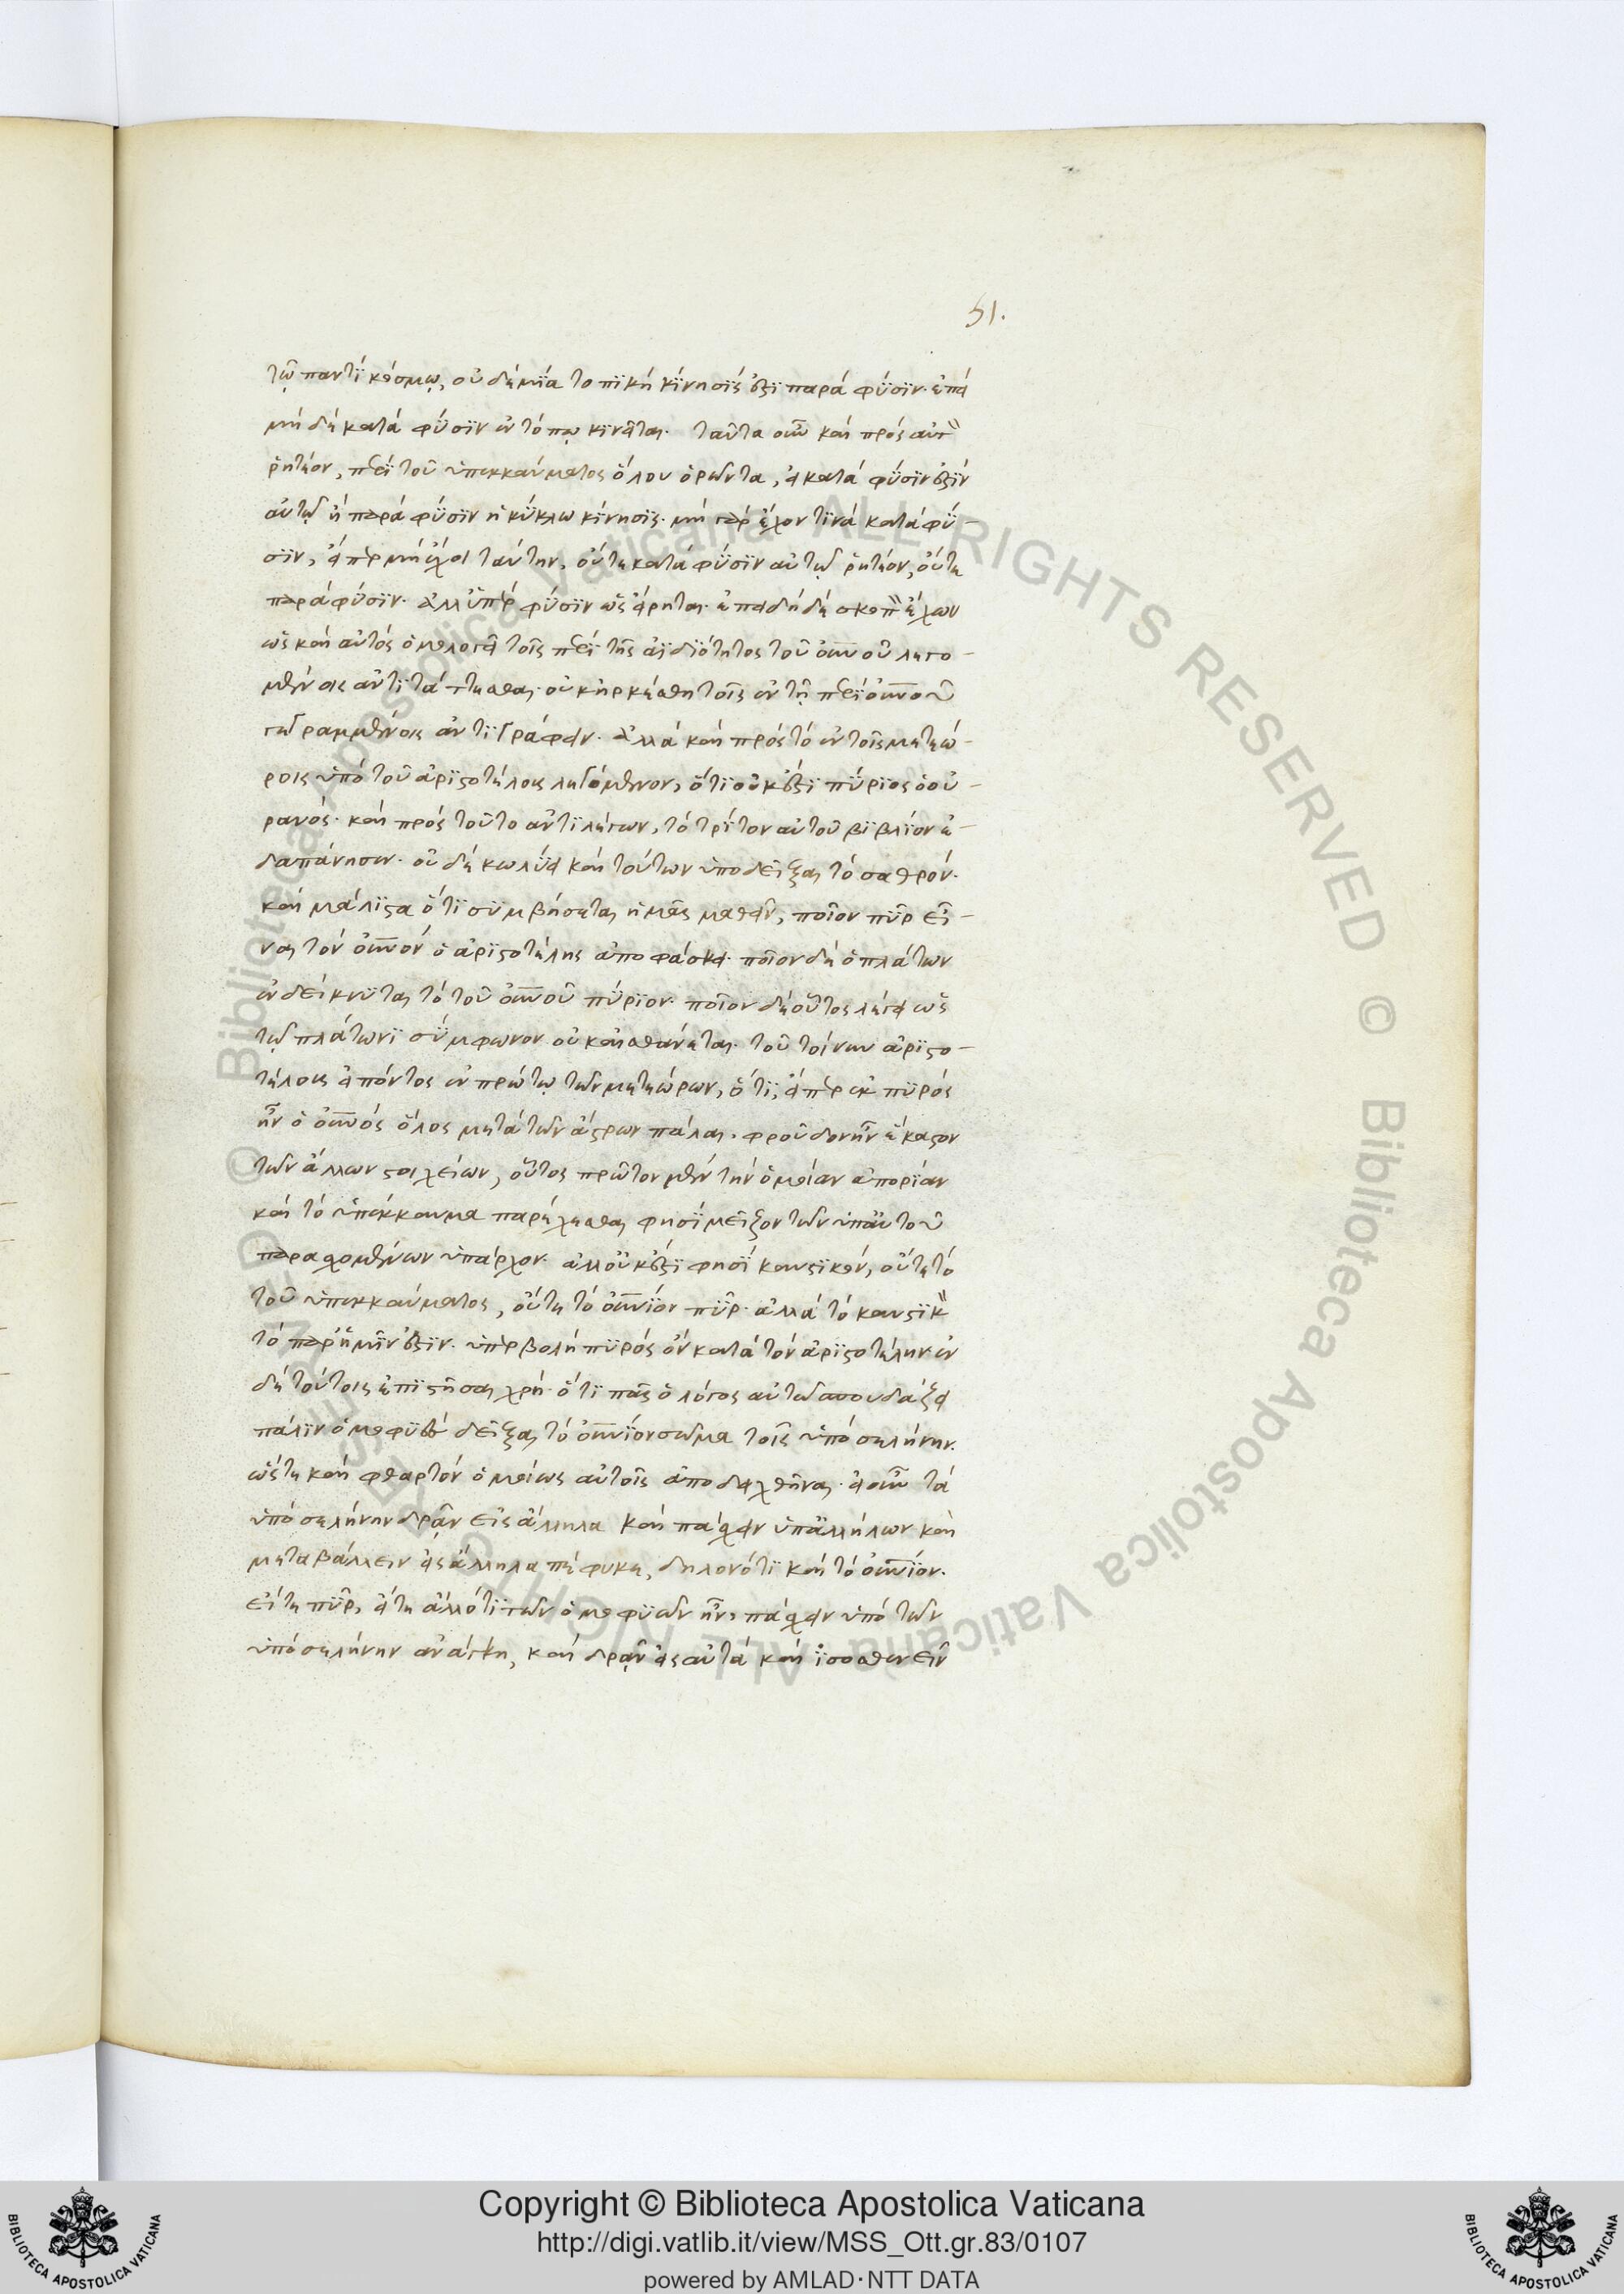 51.
τῷ παντὶ κόσμῳ, οὐδεμία τοπικὴ κίνησίς ἐστι παρὰ φύσιν· ἐπεὶ
μὴ δὲ κατὰ φύσιν ἐν τόπῳ κινεῖται. ταῦτα οὖν καὶ πρὸς αὐτ
ῥητέον, περὶ τοῦ ὑπεκκαύματος ὅλου ἐρωτα, εἰ κατὰ φύσιν ἐστὶν
αὐτῷ ἢ παρὰ φύσιν ἡ κύκλω κίνησις. μὴ γὰρ ἔχον τινὰ κατὰ φύ-
σιν, εἴπερ μὴ ἔχοι ταύτην, οὔτε κατὰ φύσιν αὐτῷ ῥητέον, οὔτε
παρὰ φύσιν· ἀλλ' ὑπὲρ φύσιν ὡς εἴρηται. ἐπειδὴ δὲ σκοπ ἔχων
ὡς καὶ αὐτὸς ὁμολογεῖ τοῖς περὶ τῆς ἀϊδιότητος τοῦ οὐνοῦ λεγο-
μένοις ἀντιτάττεσθαι. οὐκ ἠρκέσθη τοῖς ἐν τῇ περὶ οὐνοῦ
γεγραμμένοις ἀντιγράφειν. ἀλλὰ καὶ πρὸς τὸ ἐν τοῖς μετεώ-
ροις ὑπὸ τοῦ ἀριστοτέλους λεγόμενον, ὅτι οὐκ ἔστι πύριος ὁ οὐ-
ρανός. καὶ πρὸς τοῦτο ἀντιλέγων, τὸ τρίτον αὐτοῦ βιβλίον ἐ-
δαπάνησεν. οὐδὲ κωλύει καὶ τούτων ὑποδεῖξαι τὸ σαθρόν.
καὶ μάλιστα ὅτι συμβήσεται ἡμᾶς μαθεῖν, ποῖον πῦρ εἶ-
ναι τὸν οὐνὸν ὁ ἀριστοτέλης ἀποφάσκει. ποῖον δὲ ὁ πλάτων
ἐνδείκνυται τὸ τοῦ οὐνοῦ πύριον. ποῖον δὲ οὗτος λέγει ὡς
τῷ πλάτωνι σύμφωνον οὐκ αἰσθάνεται. τοῦ τοίνυν ἀριστο-
τέλους εἰπόντος ἐν πρώτῳ τῶν μετεώρων, ὅτι, εἴπερ ἐκ πυρὸς
ἦν ὁ οὐνὸς ὅλος μετὰ τῶν ἄστρων πάλαι. φροῦδον ἦν ἕκαστον
τῶν ἄλλων στοιχείων, οὗτος πρῶτον μὲν τὴν ὁμοίαν ἀπορίαν
καὶ τὸ ὑπέκκαυμα παρέχεσθαι φησὶ μεῖζον τῶν ὑπ' αὐτοῦ
περιεχομένων ὑπάρχον. ἀλλ' οὐκ ἔστι φησὶ καυστικὸν, οὔτε τὸ
τοῦ ὑπεκκαύματος, οὔτε τὸ οὐνίον πῦρ. ἀλλὰ τὸ καυστικ
τὸ παρ' ἡμῖν ἐστιν. ὑπερβολὴ πυρὸς ὂν κατὰ τὸν ἀριστοτέλην· ἐν
δὲ τούτοις ἐπιστῆσαι χρὴ. ὅτι πᾶς ὁ λόγος αὐτῶ σπουδάζει
πάλιν ὁμοφυὲς δεῖξαι τὸ οὐνίον σῶμα τοῖς ὑπὸ σελήνην.
ὥστε καὶ φθαρτὸν ὁμοίως αὐτοῖς ἀποδειχθῆναι. εἰ οὖν τὰ
ὑπὸ σελήνην δρᾷν εἰς ἄλληλα καὶ πάσχειν ὑπ' ἀλλήλων καὶ
μεταβάλλειν εἰς ἄλληλα πέφυκε, δηλονότι καὶ τὸ οὐνίον.
εἴτε πῦρ, εἴτε ἄλλό τι τῶν ὁμοφυῶν ἦν, πάσχειν ὑπὸ τῶν
ὑπὸ σελήνην ἀνάγκη, καὶ δρᾷν εἰς αὐτὰ καὶ ἰσοσθενεῖν
Copyright © Biblioteca Apostolica Vaticana
http://digi.vatlib.it/view/MSS_Ott.gr.83/0107
powered by AMLAD·NTT DATA
BIBLIOTECA APOSTOLICA VATICANA
BIBLIOTECA APOSTOLICA VATICANA
© Biblioteca Apostolica Vaticana ALL RIGHTS RESERVED © Biblioteca Apostolica Vaticana ALL RIGHTS RESERVED